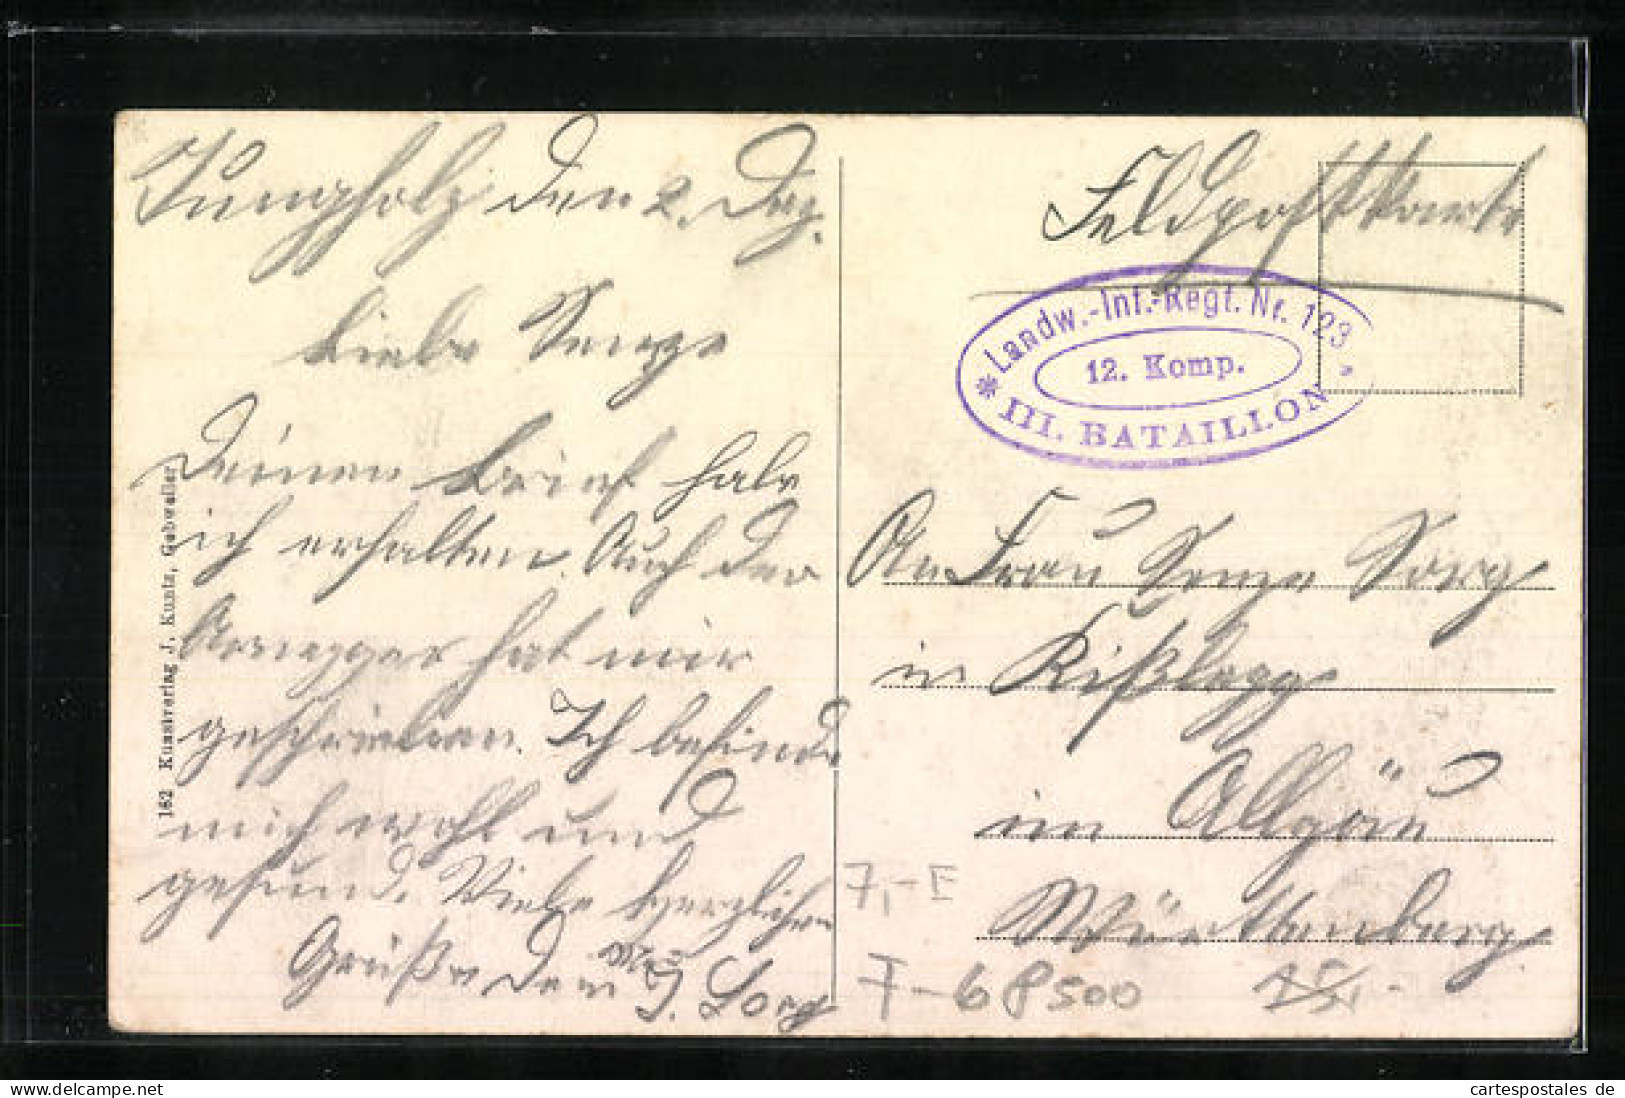 Jungholz den 2. Dez.
Liebe Senze
Deinen Brief habe
ich erhalten. Auch der
hat mir
geschrieben. Ich befinde
mich wohl und
gesund. Viele herzlichen
Grüße Dein
J. Sorg
162 Kunstverlag J. Kuntz, Gebweiler
Feldpostkarte
* Landw.-Inf.-Regt. Nr. 123 *
12. Komp.
III. BATAILLON
An Frau Senze Sorg
in Kißlegg
im Allgäu
Württenberg
7,- E
F-68500
cartespostales de